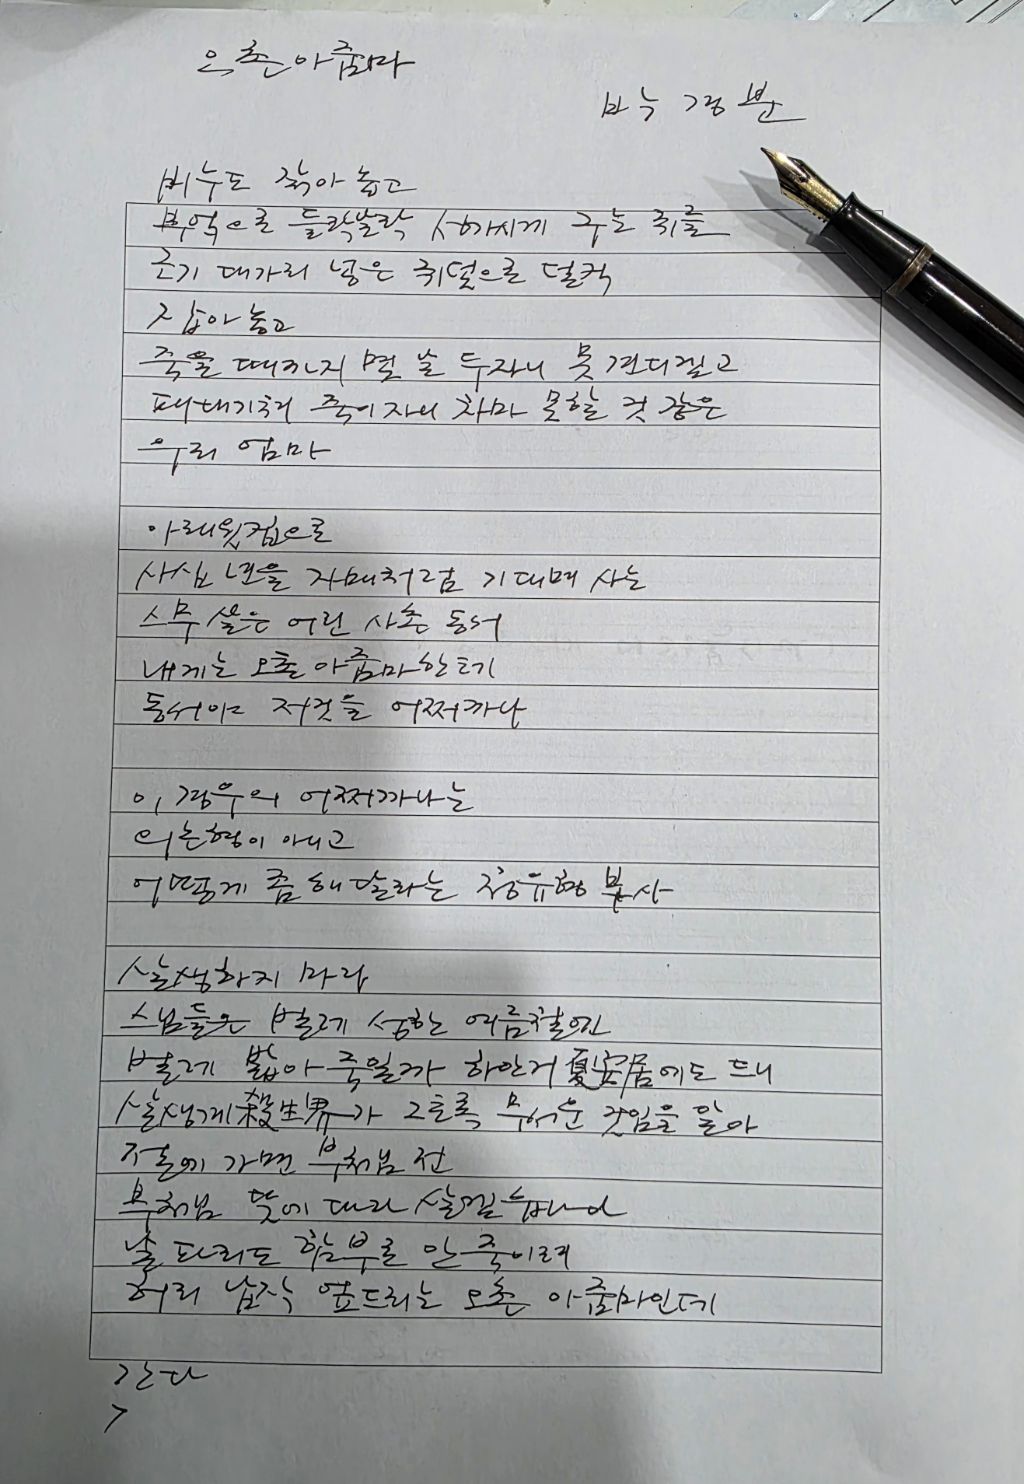 오촌 아줌마
박경분
비누도 갉아 놓고
부엌으로 들락날락 성가시게 구는 쥐를
조기 대가리 넣은 쥐덫으로 덜컥
잡아 놓고
죽을 때까지 몇 날 두자니 못 견디겠고
패대기쳐 죽이자니 차마 못할 것 같은
우리 엄마
아래윗집으로
사십 년을 자매처럼 기대며 사는
스무 살은 어린 사촌 동서
내게는 오촌 아줌마한테
동서야 저것을 어쩌까나
이 경우의 어쩌까나는
의논형이 아니고
어떻게 좀 해달라는 청유형 부사
살생하지 마라
스님들은 벌레 성한 여름철엔
벌레 밟아 죽일까 하안거夏安居에도 드니
살생계殺生界가 그토록 무서운 것임을 알아
절에 가면 부처님 전
부처님 뜻에 따라 살겠습니다
날파리도 함부로 안 죽이려
허리 납작 엎드리는 오촌 아줌마인데
간다
>